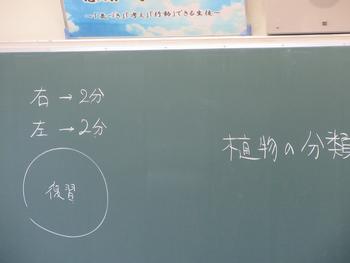 ～「気づき」「考え」「行動」できる生徒～
右→2分
左→2分
復習
植物の分類